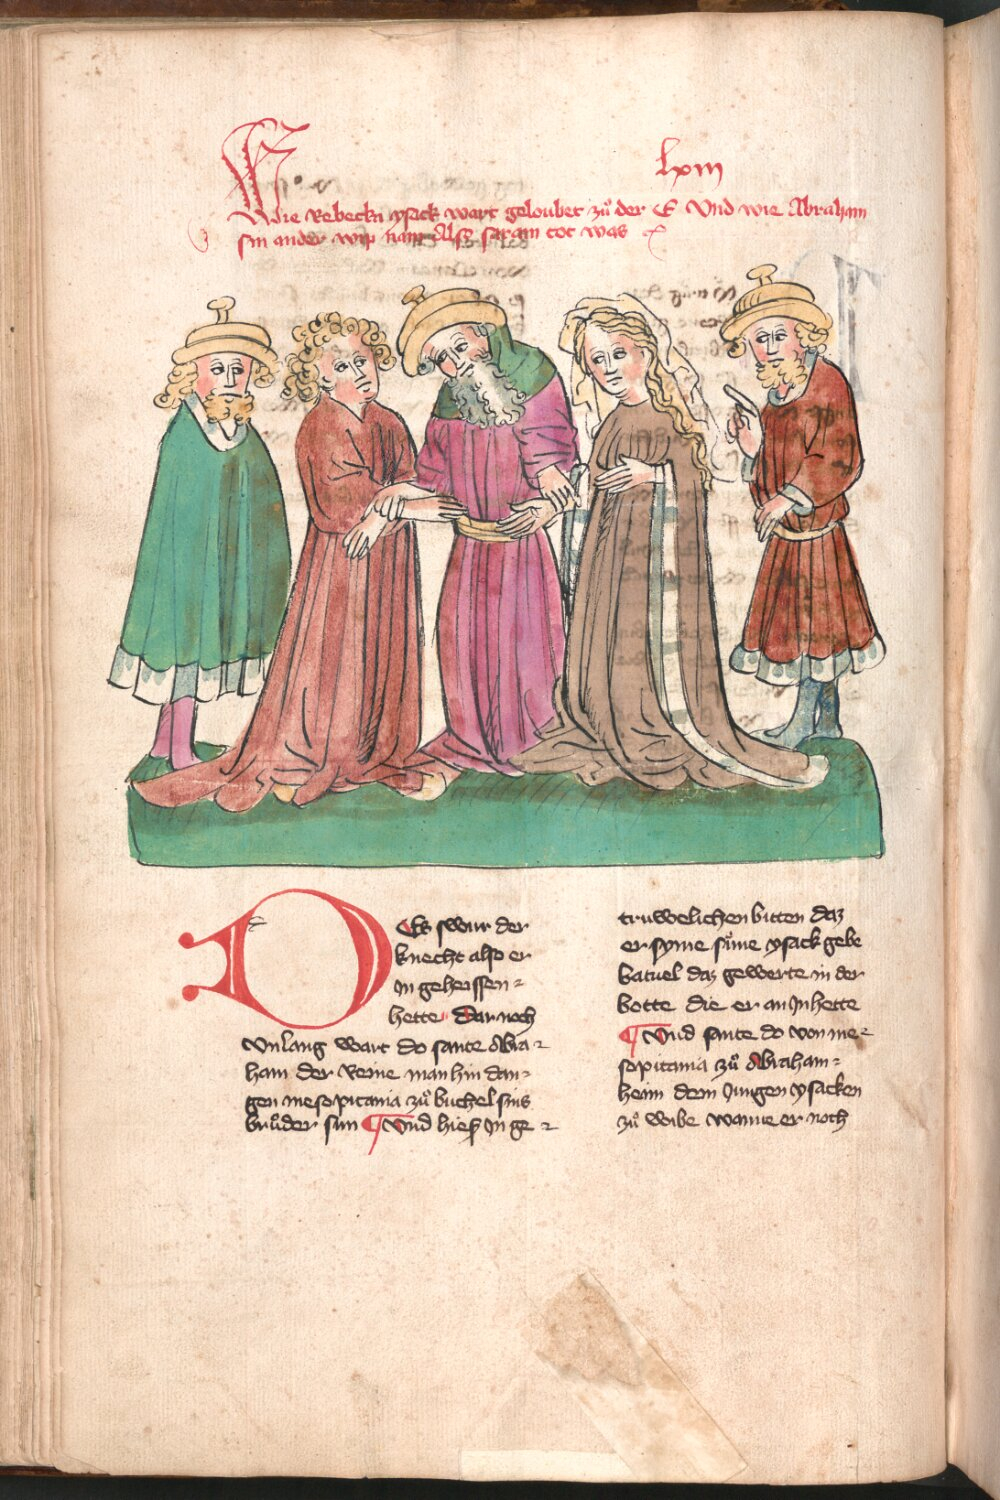 lxiii
Wie Rebeckn ysack wart geloubet zů der E Vnd wie Abraham
sin ander wip nam Als saram tot was
Es swur der
knecht also er
In geheissen-
hette Dar noch
Vnlang wart do sante Abra-
ham der Reine man hin dan-
gen mesopitania zů buchel sins
brůder sun Vnd hies In ge-
truwelichen bitten daz
er syme sůne ysack gebe
batuel daz gewerte in der
bette die er an In hette
Vnd sante do von me-
sopitania zů Abraham-
heim dem Jungen ysacken
zů wibe wanne er noch